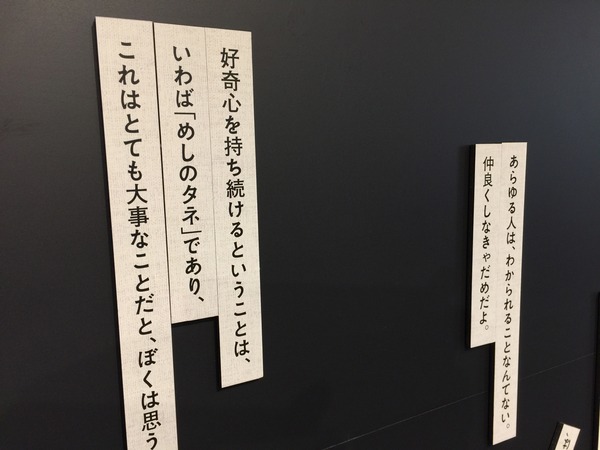 あらゆる人は、わかられることなんてない。
仲良くしなきゃだめだよ。
好奇心を持ち続けるということは、
いわば「めしのタネ」であり、
これはとても大事なことだと、ぼくは思う